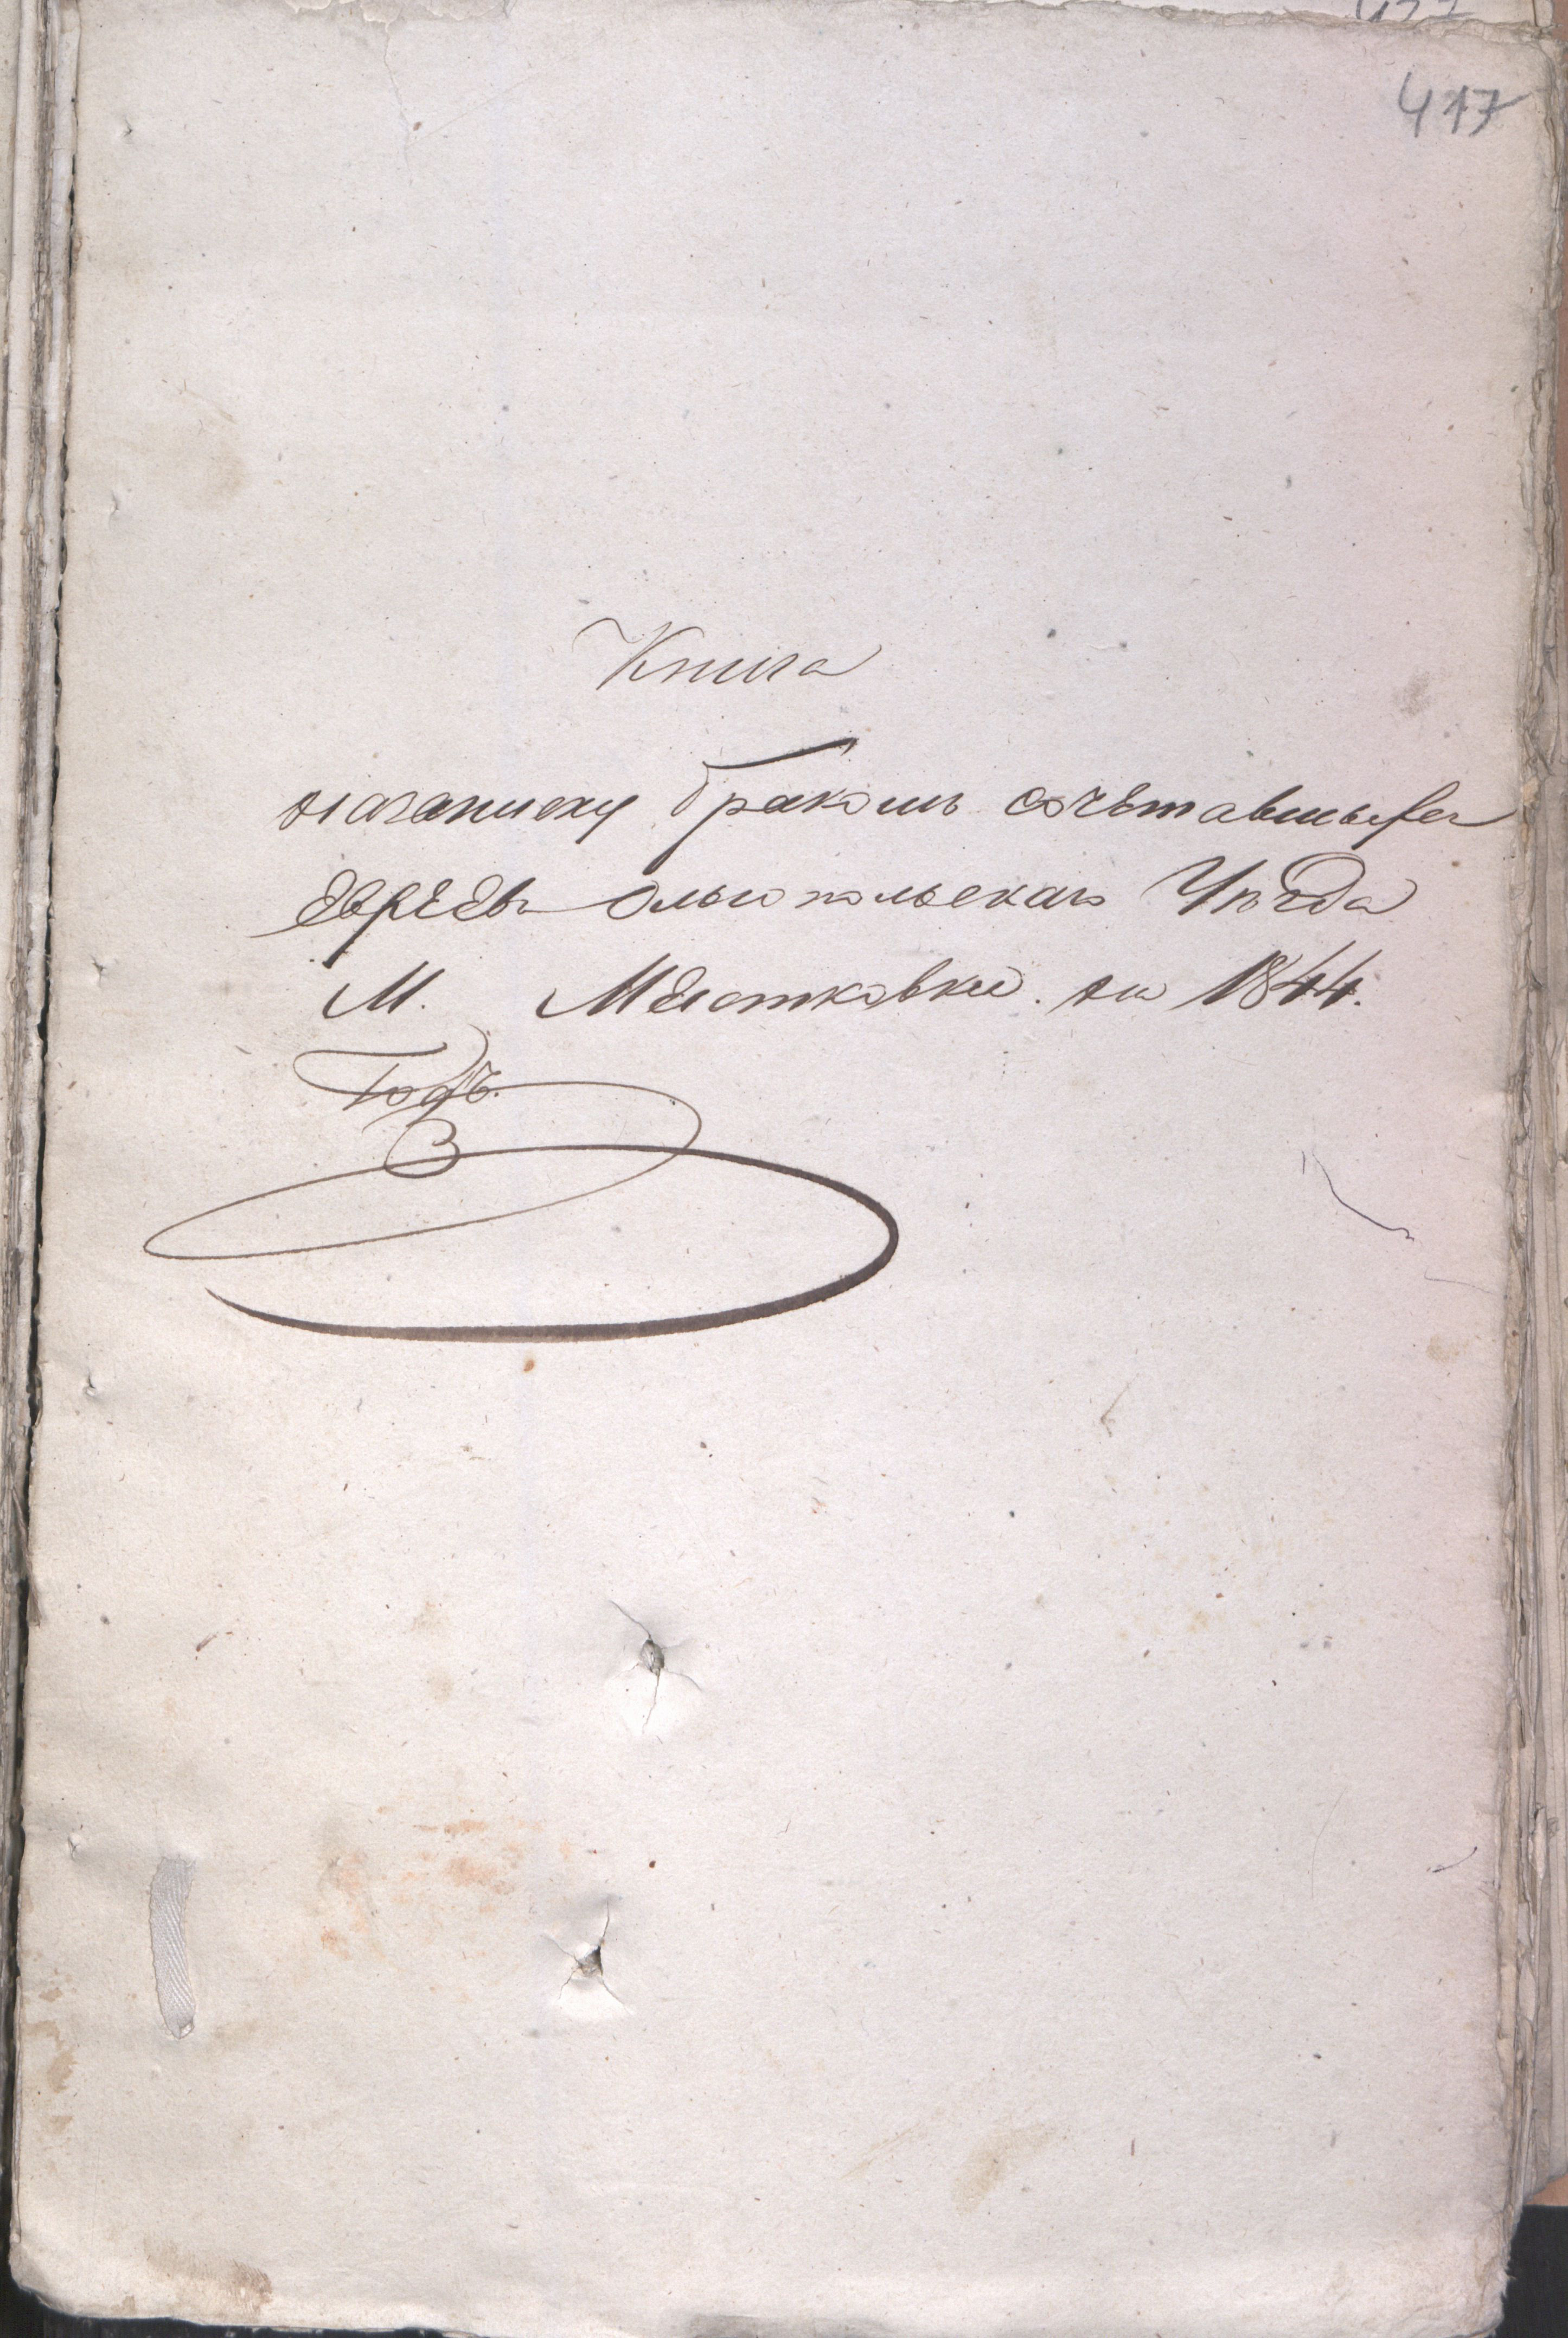 417
Книга
на записку бракомъ сочетавшыхся
Евреевъ Ольгопольскаго Уѣзда
М. Мястковки. на 1844.
Годъ.